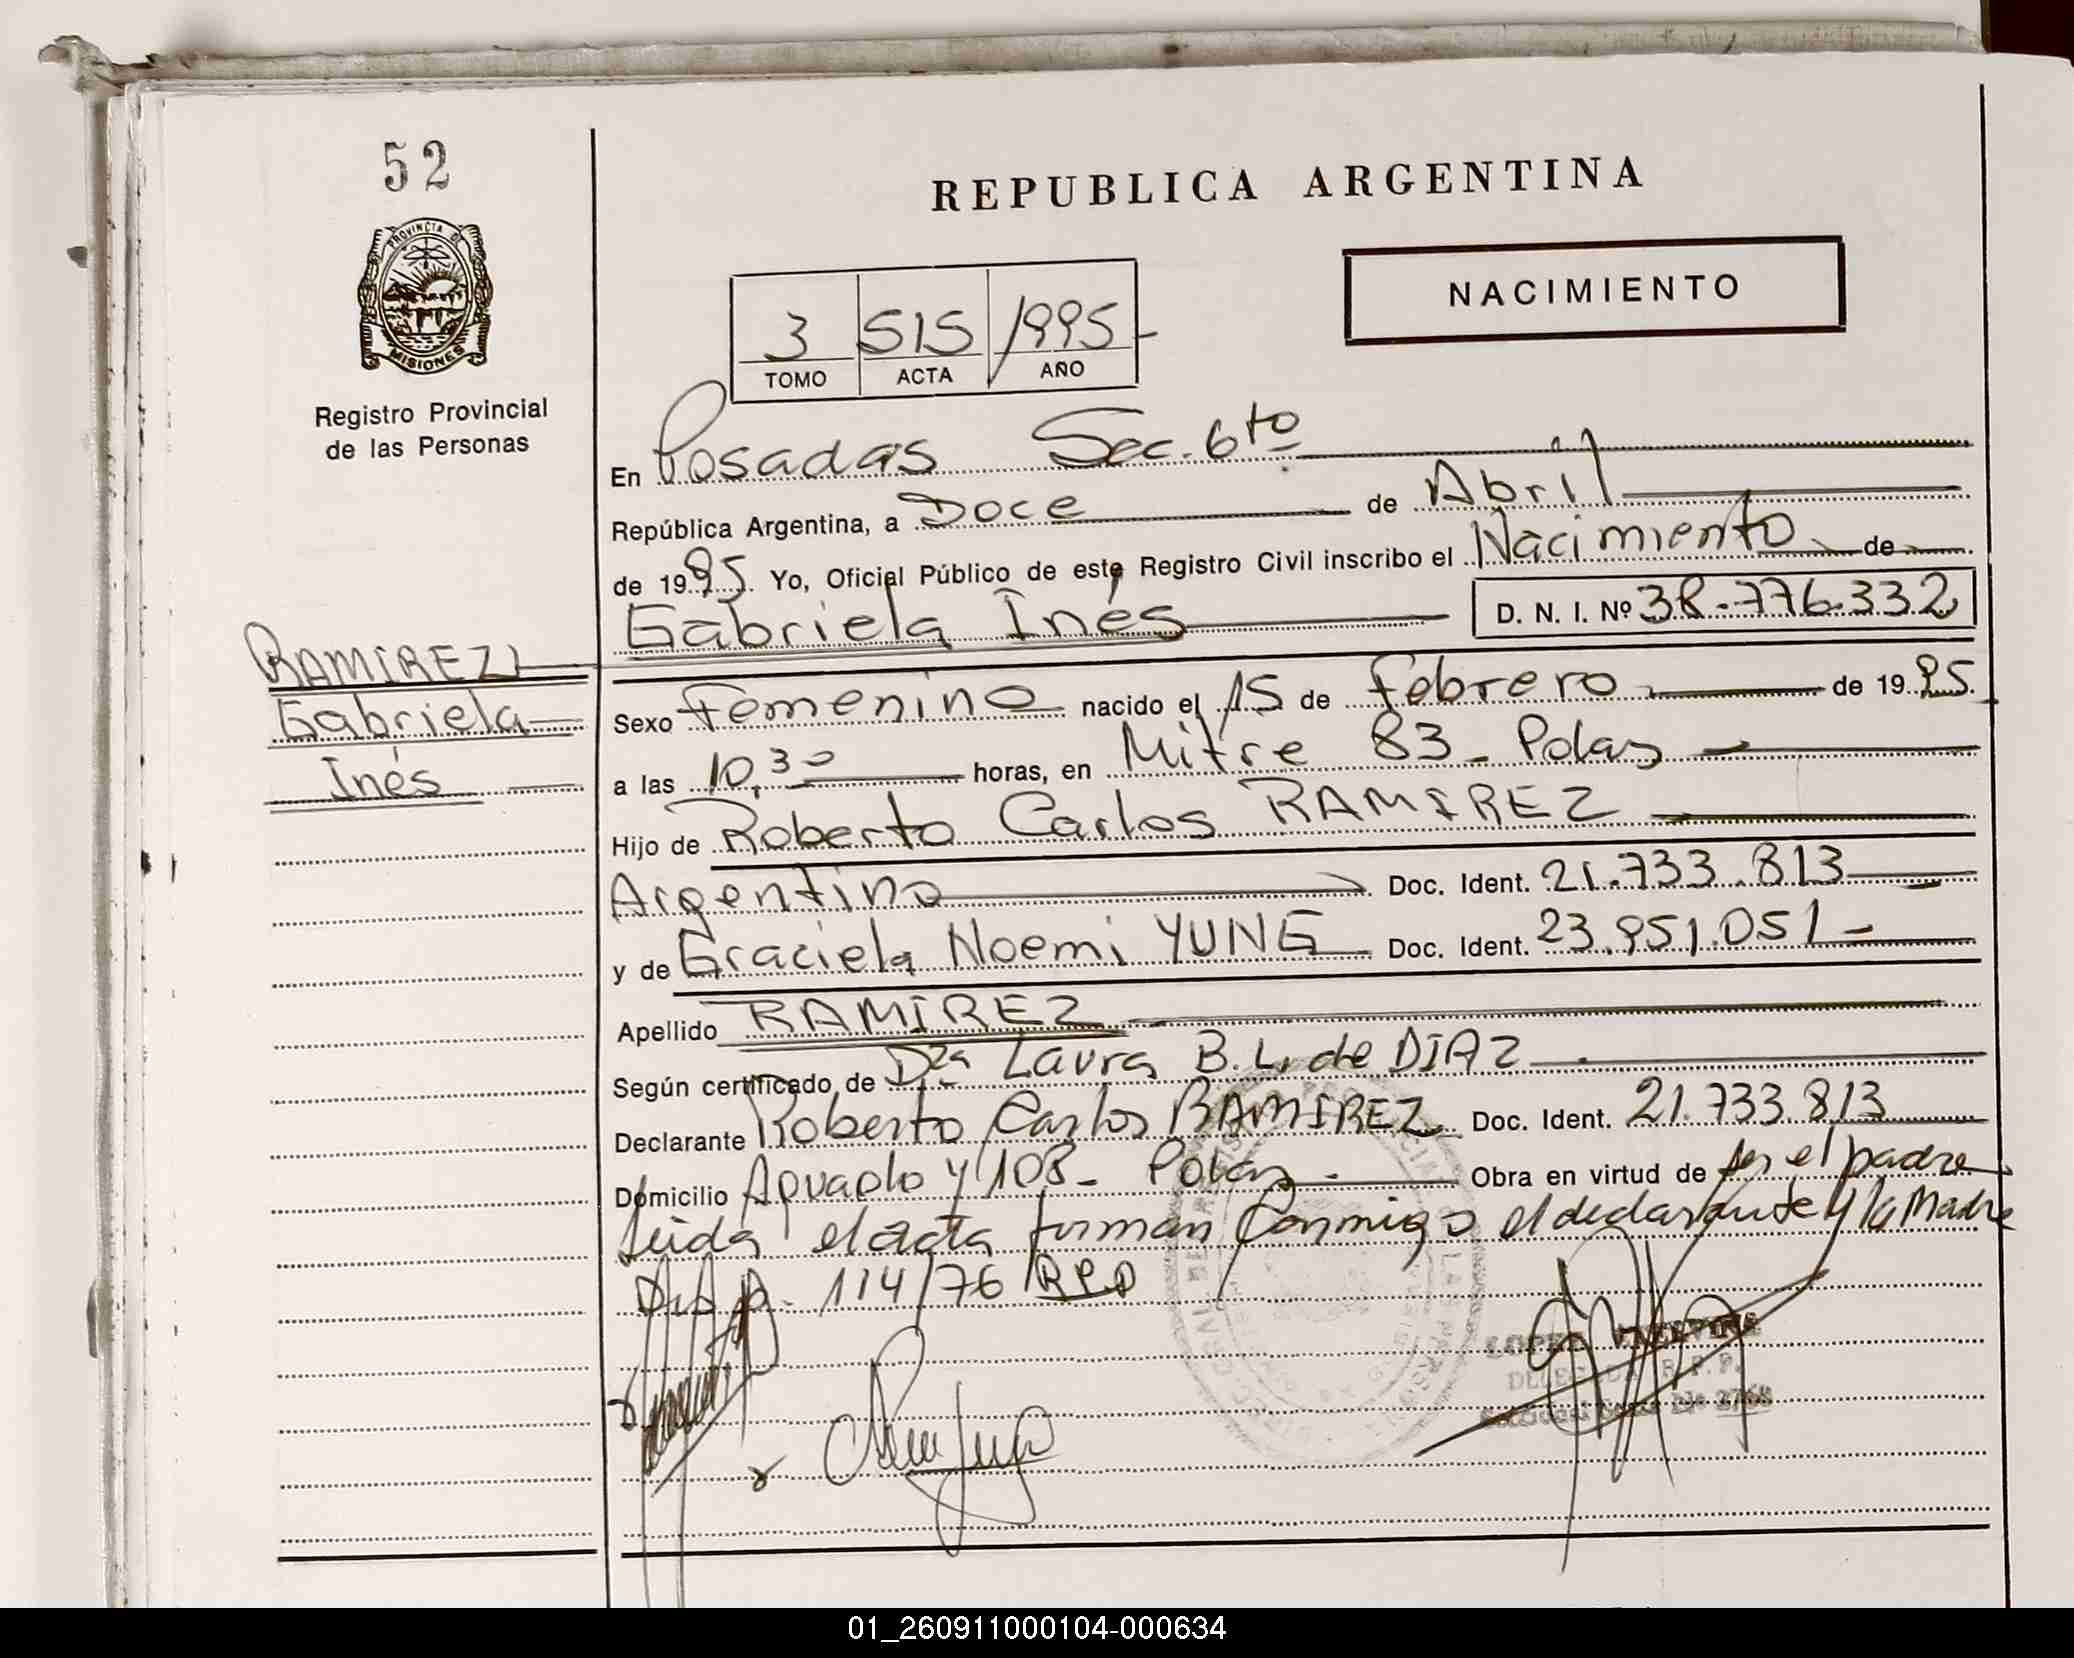 52
PROVINCIA DE
MISIONES
Registro Provincial
de las Personas
REPUBLICA ARGENTINA
NACIMIENTO
3 515 1995
TOMO ACTA AÑO
En Posadas Sec. 6to
República Argentina, a Doce de Abril
de 1995 Yo, Oficial Público de este Registro Civil inscribo el Nacimiento de
Gabriela Inés D. N. I. Nº 38.776.332
RAMIREZ
Gabriela
Inés
Sexo Femenino nacido el 15 de Febrero de 1995
a las 10,30 horas, en Mitre 83 - Pdas
Hijo de Roberto Carlos RAMIREZ
Argentino Doc. Ident. 21.733.813
y de Graciela Noemi YUNG Doc. Ident. 23.951.051 -
Apellido RAMIREZ
Según certificado de Dra Laura B. L. de DIAZ
Declarante Roberto Carlos RAMIREZ Doc. Ident. 21.733.813
Domicilio y 108 - Pdas - Obra en virtud de ser el padre
Leida el acta firman conmigo el declarante y la Madre
114/76 RPP
LOPEZ
DELEGADA R.P.P.
Nº 2768
01_260911000104-000634